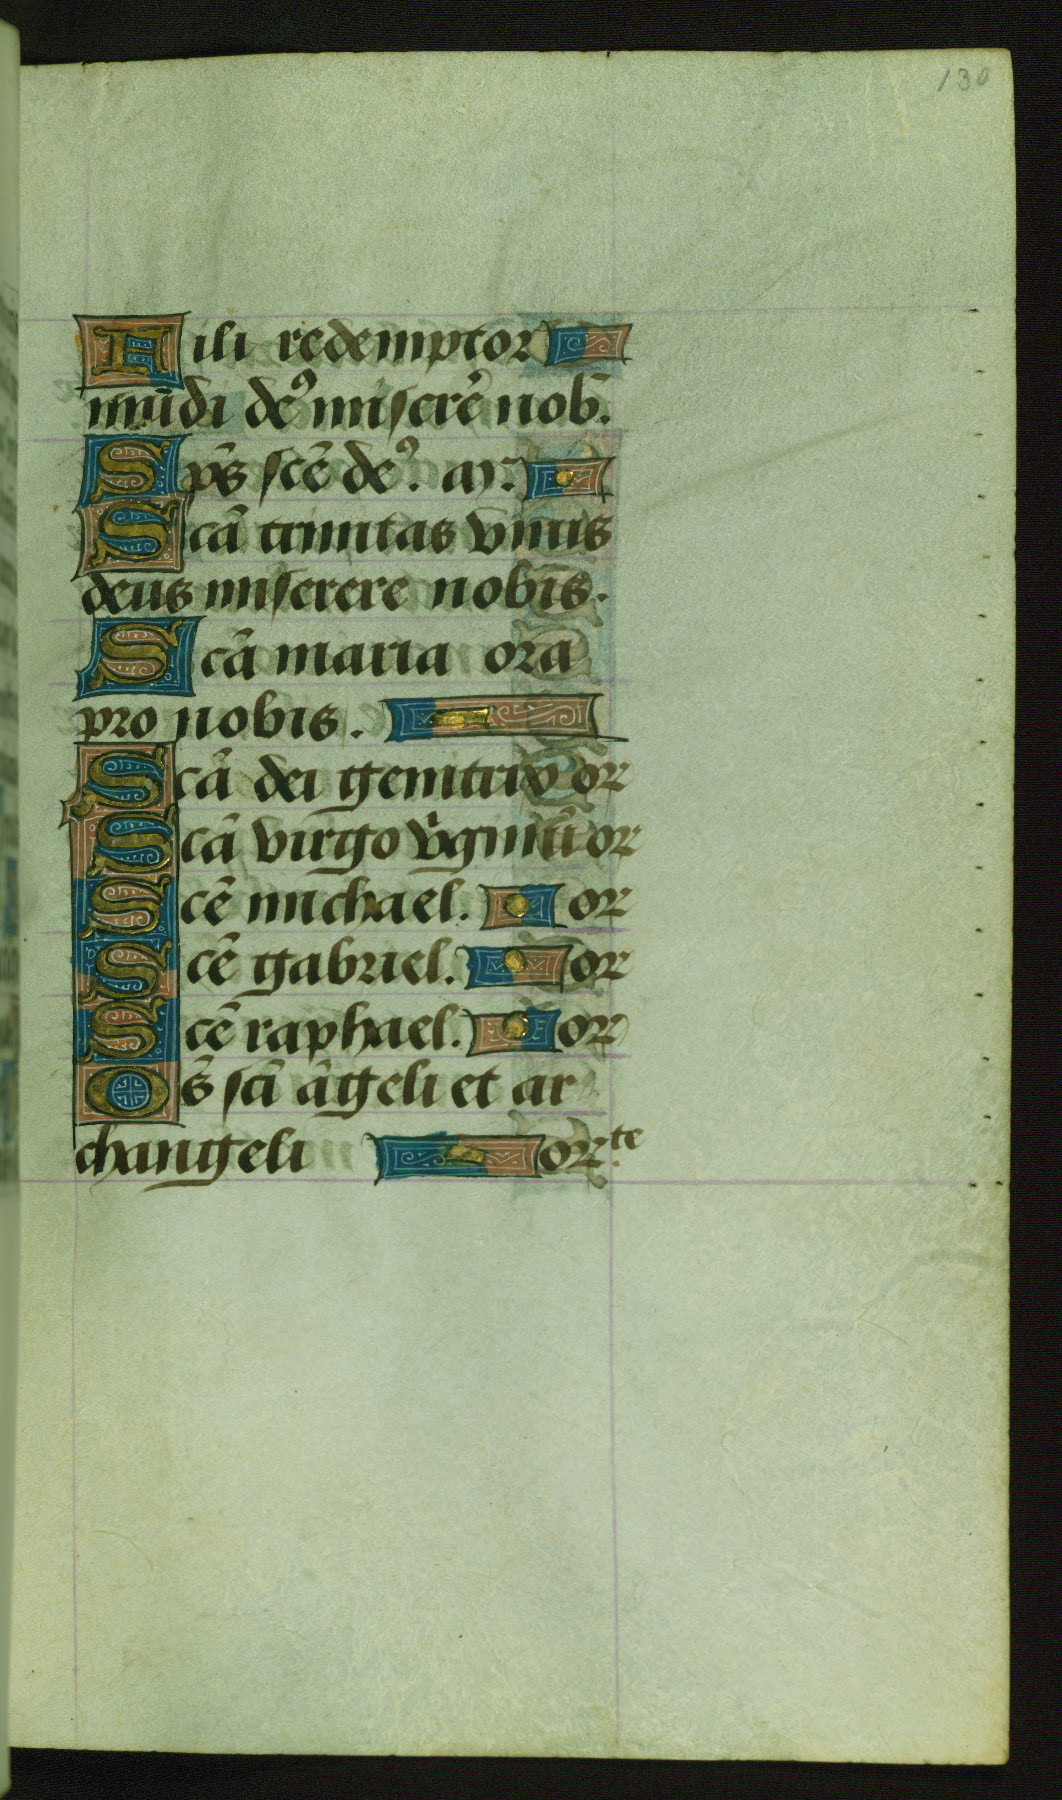 130
Fili redemptor
mūdi deꝰ miserē nob̄.
Sp̄s sc̄e deꝰ. m̄.
Sc̄a trinitas vnus
deus miserere nobis.
Sc̄a maria ora
pro nobis.
Sc̄a dei genitrix or
Sc̄a virgo v̓ginū or
Sc̄e michael. or
Sc̄e gabriel. or
Sc̄e raphael. or
Om̄s sc̄i āgeli et ar
changeli or.te